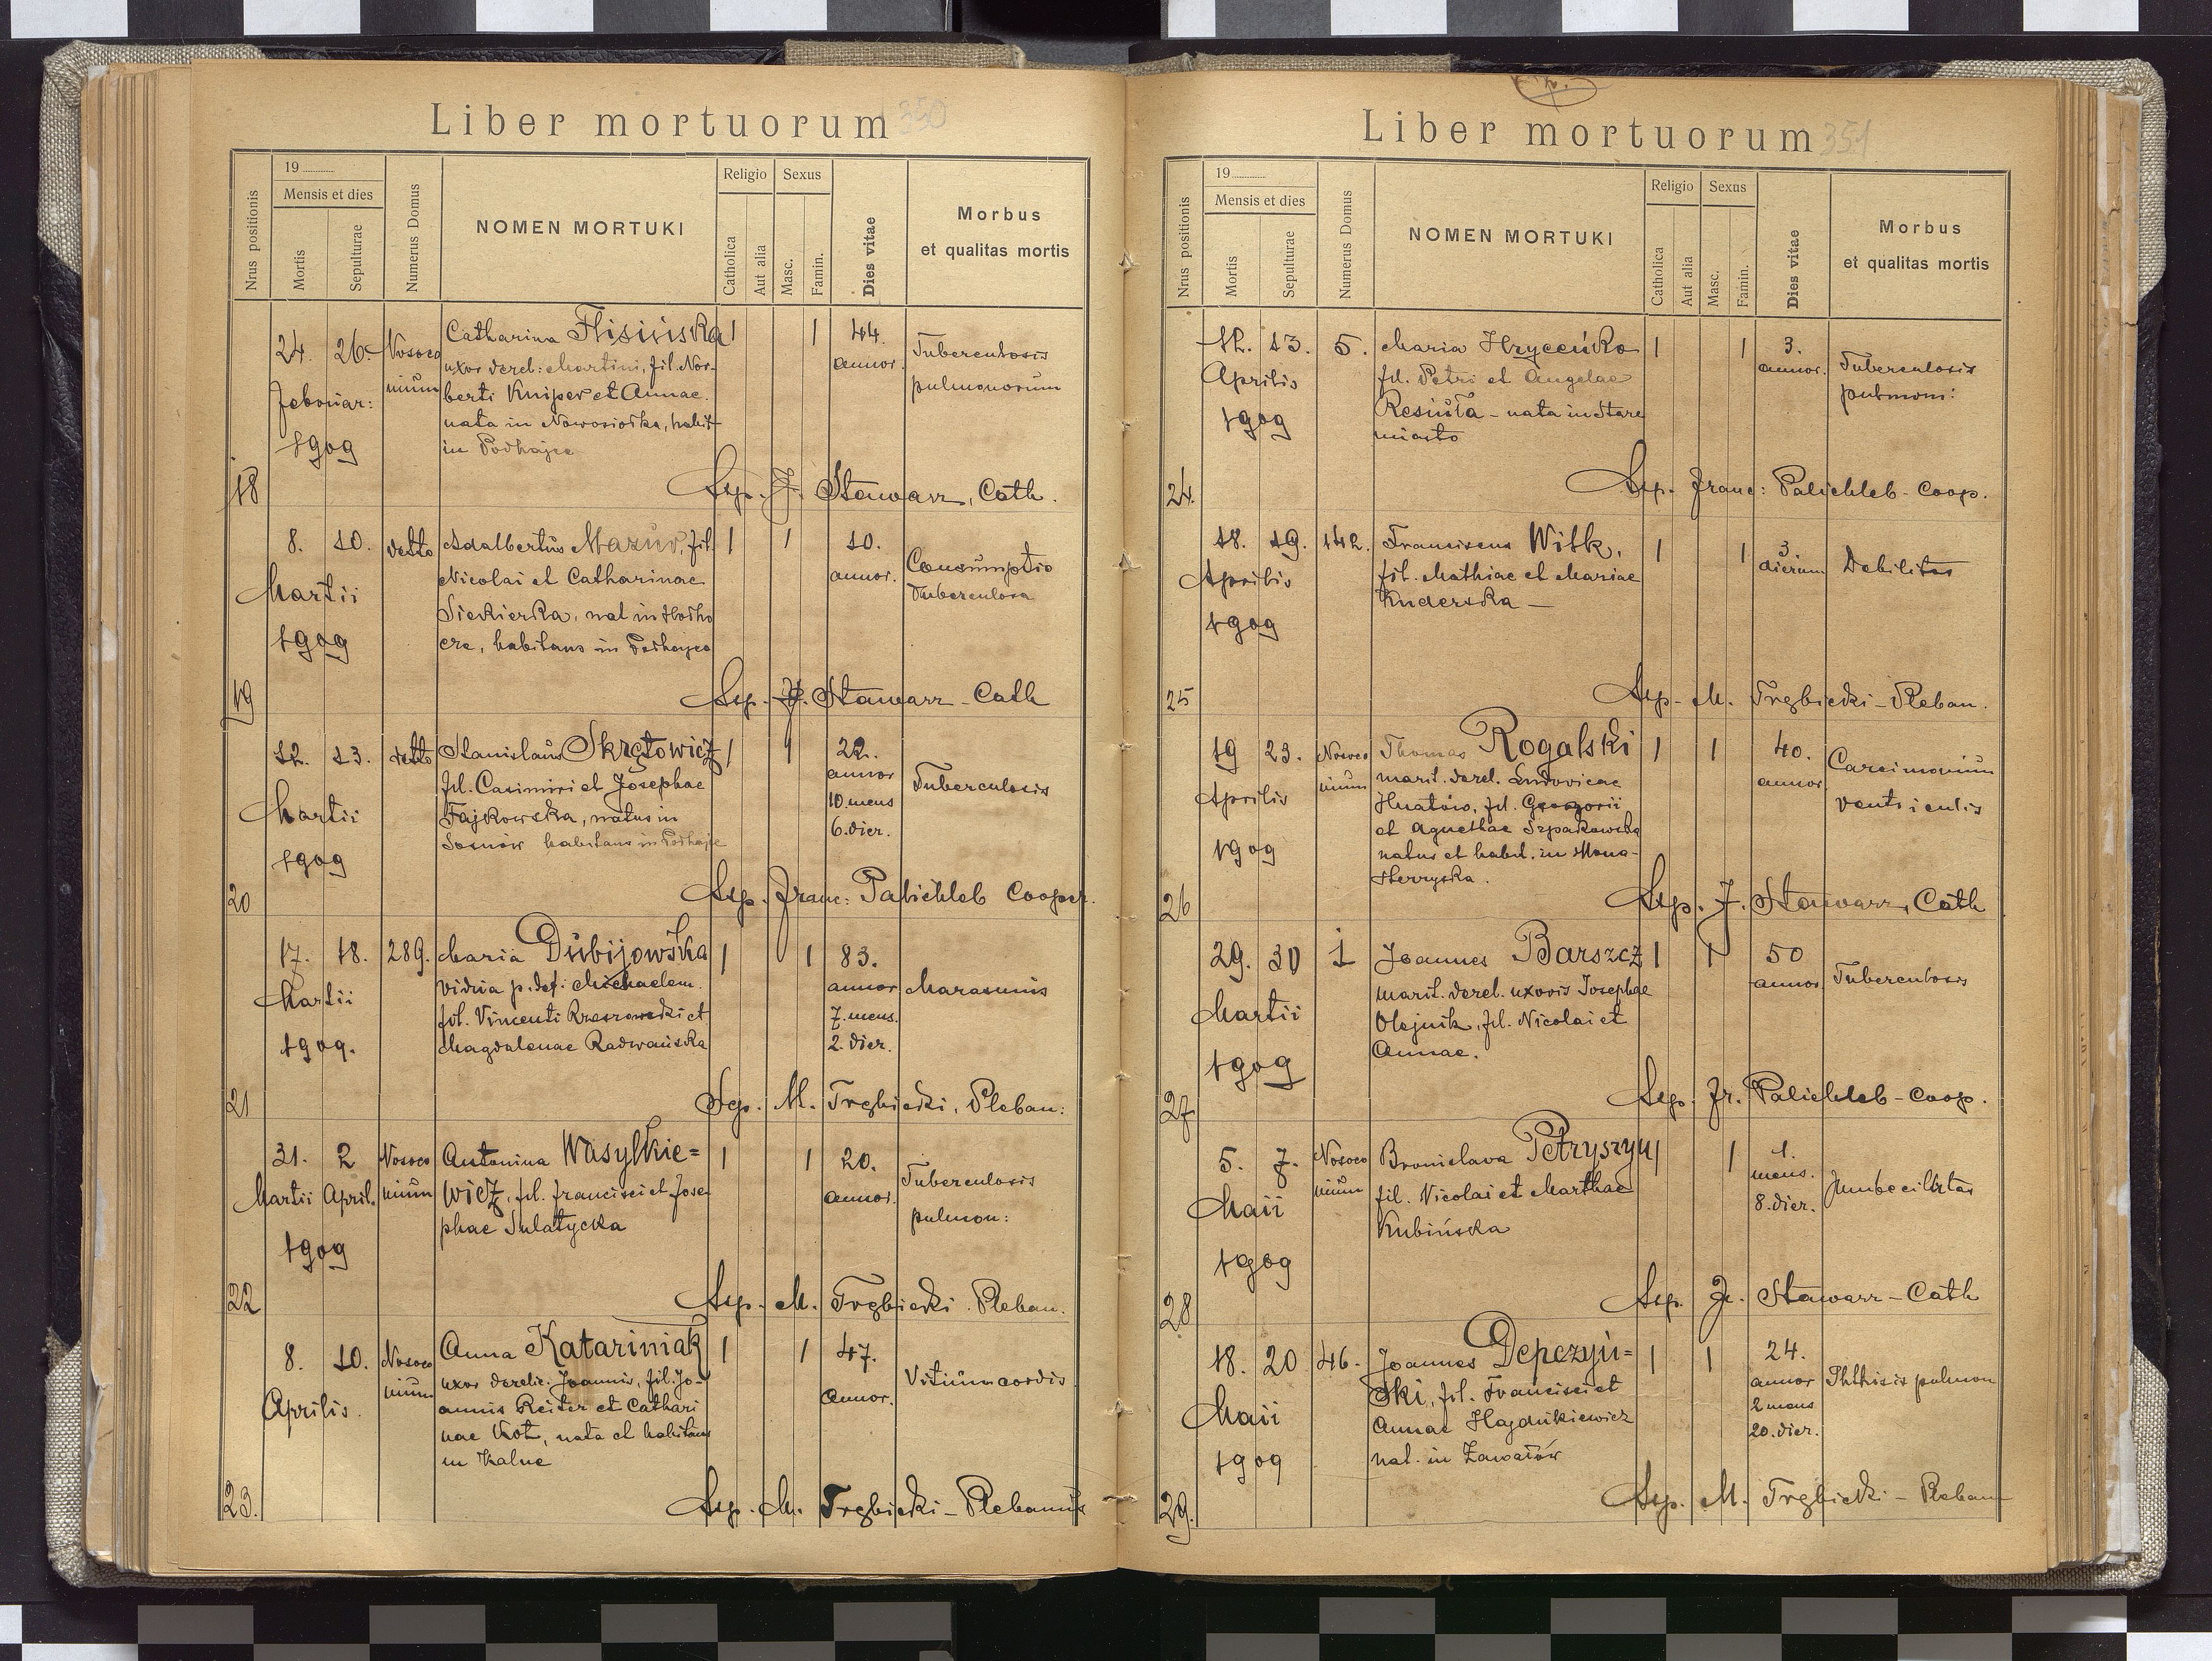 Liber mortuorum 350
Nrus positionis
19
Mensis et dies
Mortis
Sepulturae
Numerus Domus
NOMEN MORTUKI
Religio
Catholica
Aut alia
Sexus
Masc.
Famin.
Dies vitae
Morbus
et qualitas mortis
18
24. 26.
Februar:
1909
Nosoco
mium
Catharina Flisińska
uxor derel: Martini, fil. Nor-
berti Kniper et Annae.
nata in Nowosiołka, habit
in Podhajce
1 1
44.
annor.
Tuberculosis
pulmonorum
Sep. J. Stawarz, Cath.
19
8. 10.
Martii
1909
detto
Adalbertus Mazur, fil.
Nicolai et Catharinae
Siekierka, nat in Hołho
cze, habitans in Podhajce
1 1
10.
annor.
Consumptio
Tuberculosa
Sep. J. Stawarz - Cath
20
12. 13.
Martii
1909
detto
Stanislaus Skrętowicz
fil. Casimiri et Josephae
Fajkowska, natus in
Sosnów habitans in Podhajce
1 1
22.
annor
10 mens
6. dier.
Tuberculosis
Sep. Franc: Palichleb Cooper.
21
17. 18.
Martii
1909.
289.
Maria Dubijowska
vidua p. def: Michaelem.
fil. Vincenti Rzeszowski et
Magdalenae Radwańska
1 1
83.
annor
7. mens.
2. dier.
Marasmus
Sep. M. Trębicki, Pleban:
22
31. 2
Martii April.
1909
Nosoco
mium
Antonina Wasylkie=
wicz, fil. Francisci et Jose
phae Sulatycka
1 1
20.
annor.
Tuberculosis
pulmon:
Sep. M. Trębicki. Pleban.
23.
8. 10.
Aprilis.
Nosoco
mium
Anna Katariniak
uxor derelic. Joannis, fil. Jo-
annis Reiter et Cathari
nae Kot, nata et habitans
in Kalne
1 1
47.
Annor.
Vitium cordis
Sep. M. Trębicki - Plebanus
Liber mortuorum 351
Nrus positionis
19
Mensis et dies
Mortis
Sepulturae
Numerus Domus
NOMEN MORTUKI
Religio
Catholica
Aut alia
Sexus
Masc.
Famin.
Dies vitae
Morbus
et qualitas mortis
24.
12. 13.
Aprilis
1909
5.
Maria Hryceńko
fil. Petri et Angelae
Resiuła - nata in Stare
miasto
1 1
3.
annor.
Tuberculosis
pulmoni:
Sep. Franc: Palichleb - Coop.
25
18. 19.
Aprilis
1909
142.
Francisca Witk,
fil. Mathiae et Mariae
Knderska -
1 1
3
dierum
Debilitas
Sep. M. Trębicki - Pleban.
26
19 23.
Aprilis
1909
Nosoco
mium
Thomas Rogalski
marit. derel. Ludovicae
Hnatów, fil. Gregorii
et Agnethae Szpakowska
natus et habit. in Mona-
sterzyska.
1 1
40.
annor
Carcimonium
ventriculis
Sep. J. Stawarz, Cath
27
29. 30
Martii
1909
1
Joannes Barszcz
marit. derel. uxoris Josephae
Olejnik, fil. Nicolai et
Annae.
1 1
50
annor.
Tuberculosis
Sep. Fr. Palichleb - Coop.
28
5. 7.
Maii
1909
Nosoco
mium
Bronislava Petryszyn
fil. Nicolai et Marthae
Kubińska
1 1
1.
mens.
8. dier.
Jmbecilitas
Sep. J. Stawarz - Cath
29.
18. 20
Maii
1909
46.
Joannes Depczyń=
ski, fil. Francisci et
Annae Hajdukiewicz
nat. in Zawałów
1 1
24.
annor
2 mens
20. dier.
Phthisis pulmon
Sep. M. Trębicki - Pleban